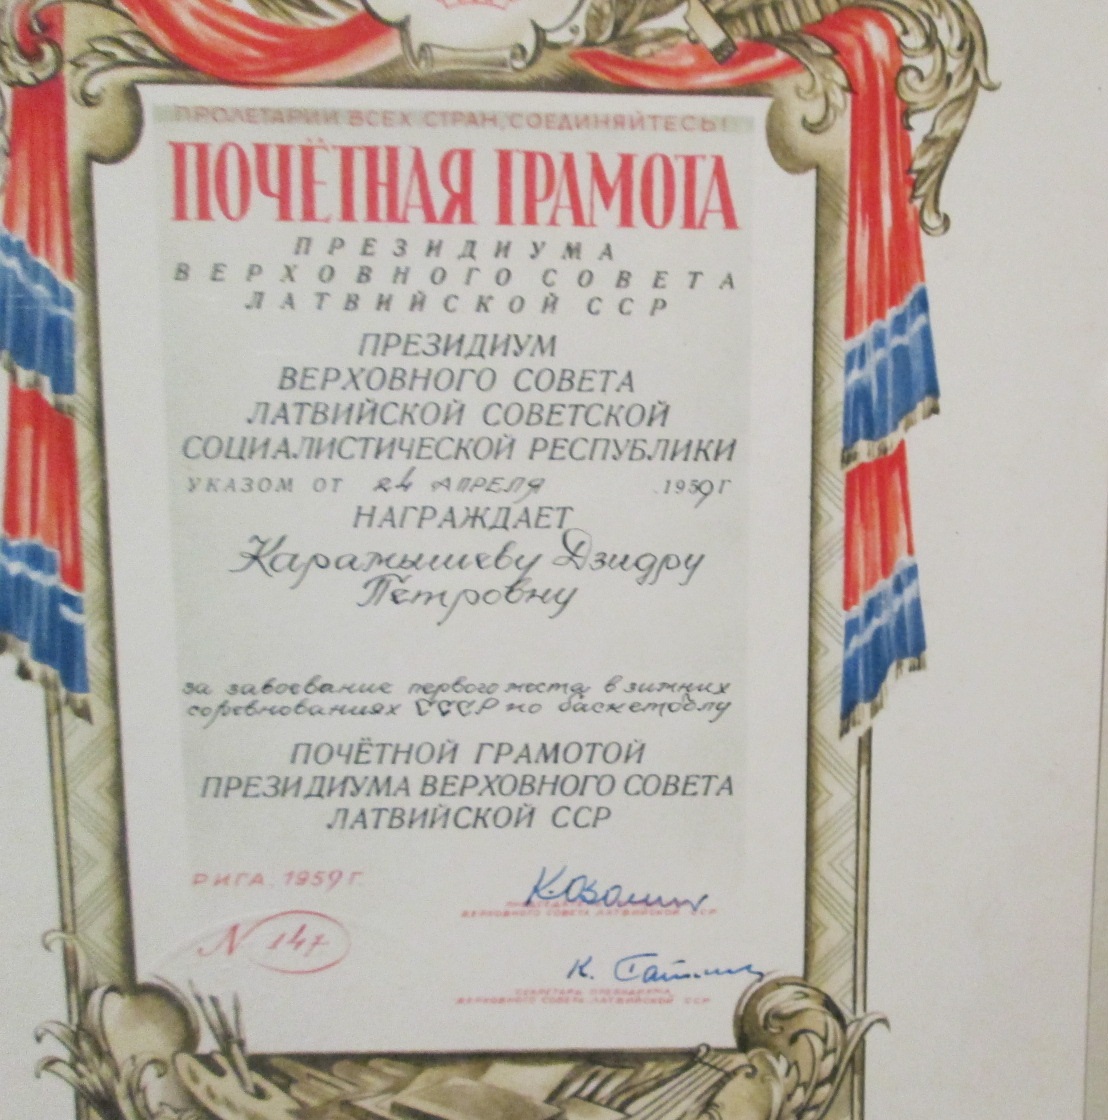 ПРОЛЕТАРИИ ВСЕХ СТРАН, СОЕДИНЯЙТЕСЬ!
ПОЧЁТНАЯ ГРАМОТА
ПРЕЗИДИУМА
ВЕРХОВНОГО СОВЕТА
ЛАТВИЙСКОЙ ССР
ПРЕЗИДИУМ
ВЕРХОВНОГО СОВЕТА
ЛАТВИЙСКОЙ СОВЕТСКОЙ
СОЦИАЛИСТИЧЕСКОЙ РЕСПУБЛИКИ
УКАЗОМ ОТ 24 АПРЕЛЯ 1959 Г
НАГРАЖДАЕТ
Каратышеву Дзидру
Петровну
за завоевание первого места в зимних
соревнованиях СССР по баскетболу
ПОЧЁТНОЙ ГРАМОТОЙ
ПРЕЗИДИУМА ВЕРХОВНОГО СОВЕТА
ЛАТВИЙСКОЙ ССР
РИГА. 1959 Г
К. Озолинь
ВЕРХОВНОГО СОВЕТА ЛАТВИЙСКОЙ ССР
N 147
К.
СЕКРЕТАРЬ ПРЕЗИДИУМА
ВЕРХОВНОГО СОВЕТА ЛАТВИЙСКОЙ ССР